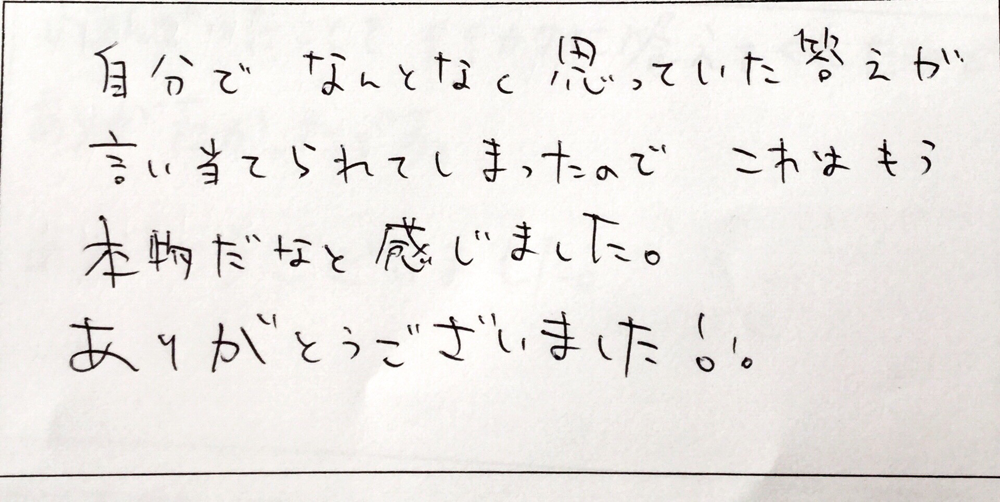 自分で なんとなく 思っていた 答えが
言い当てられてしまったので これは もう
本物だなと 感じました。
ありがとうございました!!